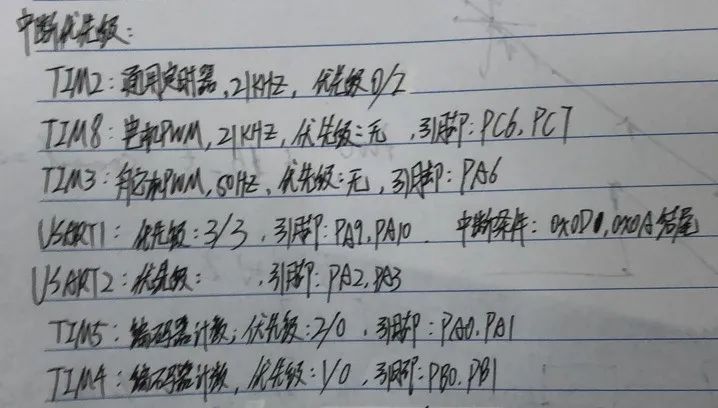 中断优先级：
TIM2：通用定时器，21KHZ，优先级0/2
TIM8：电机PWM，21KHZ，优先级：无，引脚：PC6，PC7
TIM3：舵机PWM，50HZ，优先级：无，引脚：PA6
USART1：优先级：3/3，引脚：PA9，PA10 中断条件：0x0D，0x0A结尾
USART2：优先级： ，引脚：PA2，PA3
TIM5：编码器计数；优先级：2/0，引脚：PA0，PA1
TIM4：编码器计数，优先级：1/0，引脚：PB0，PB1